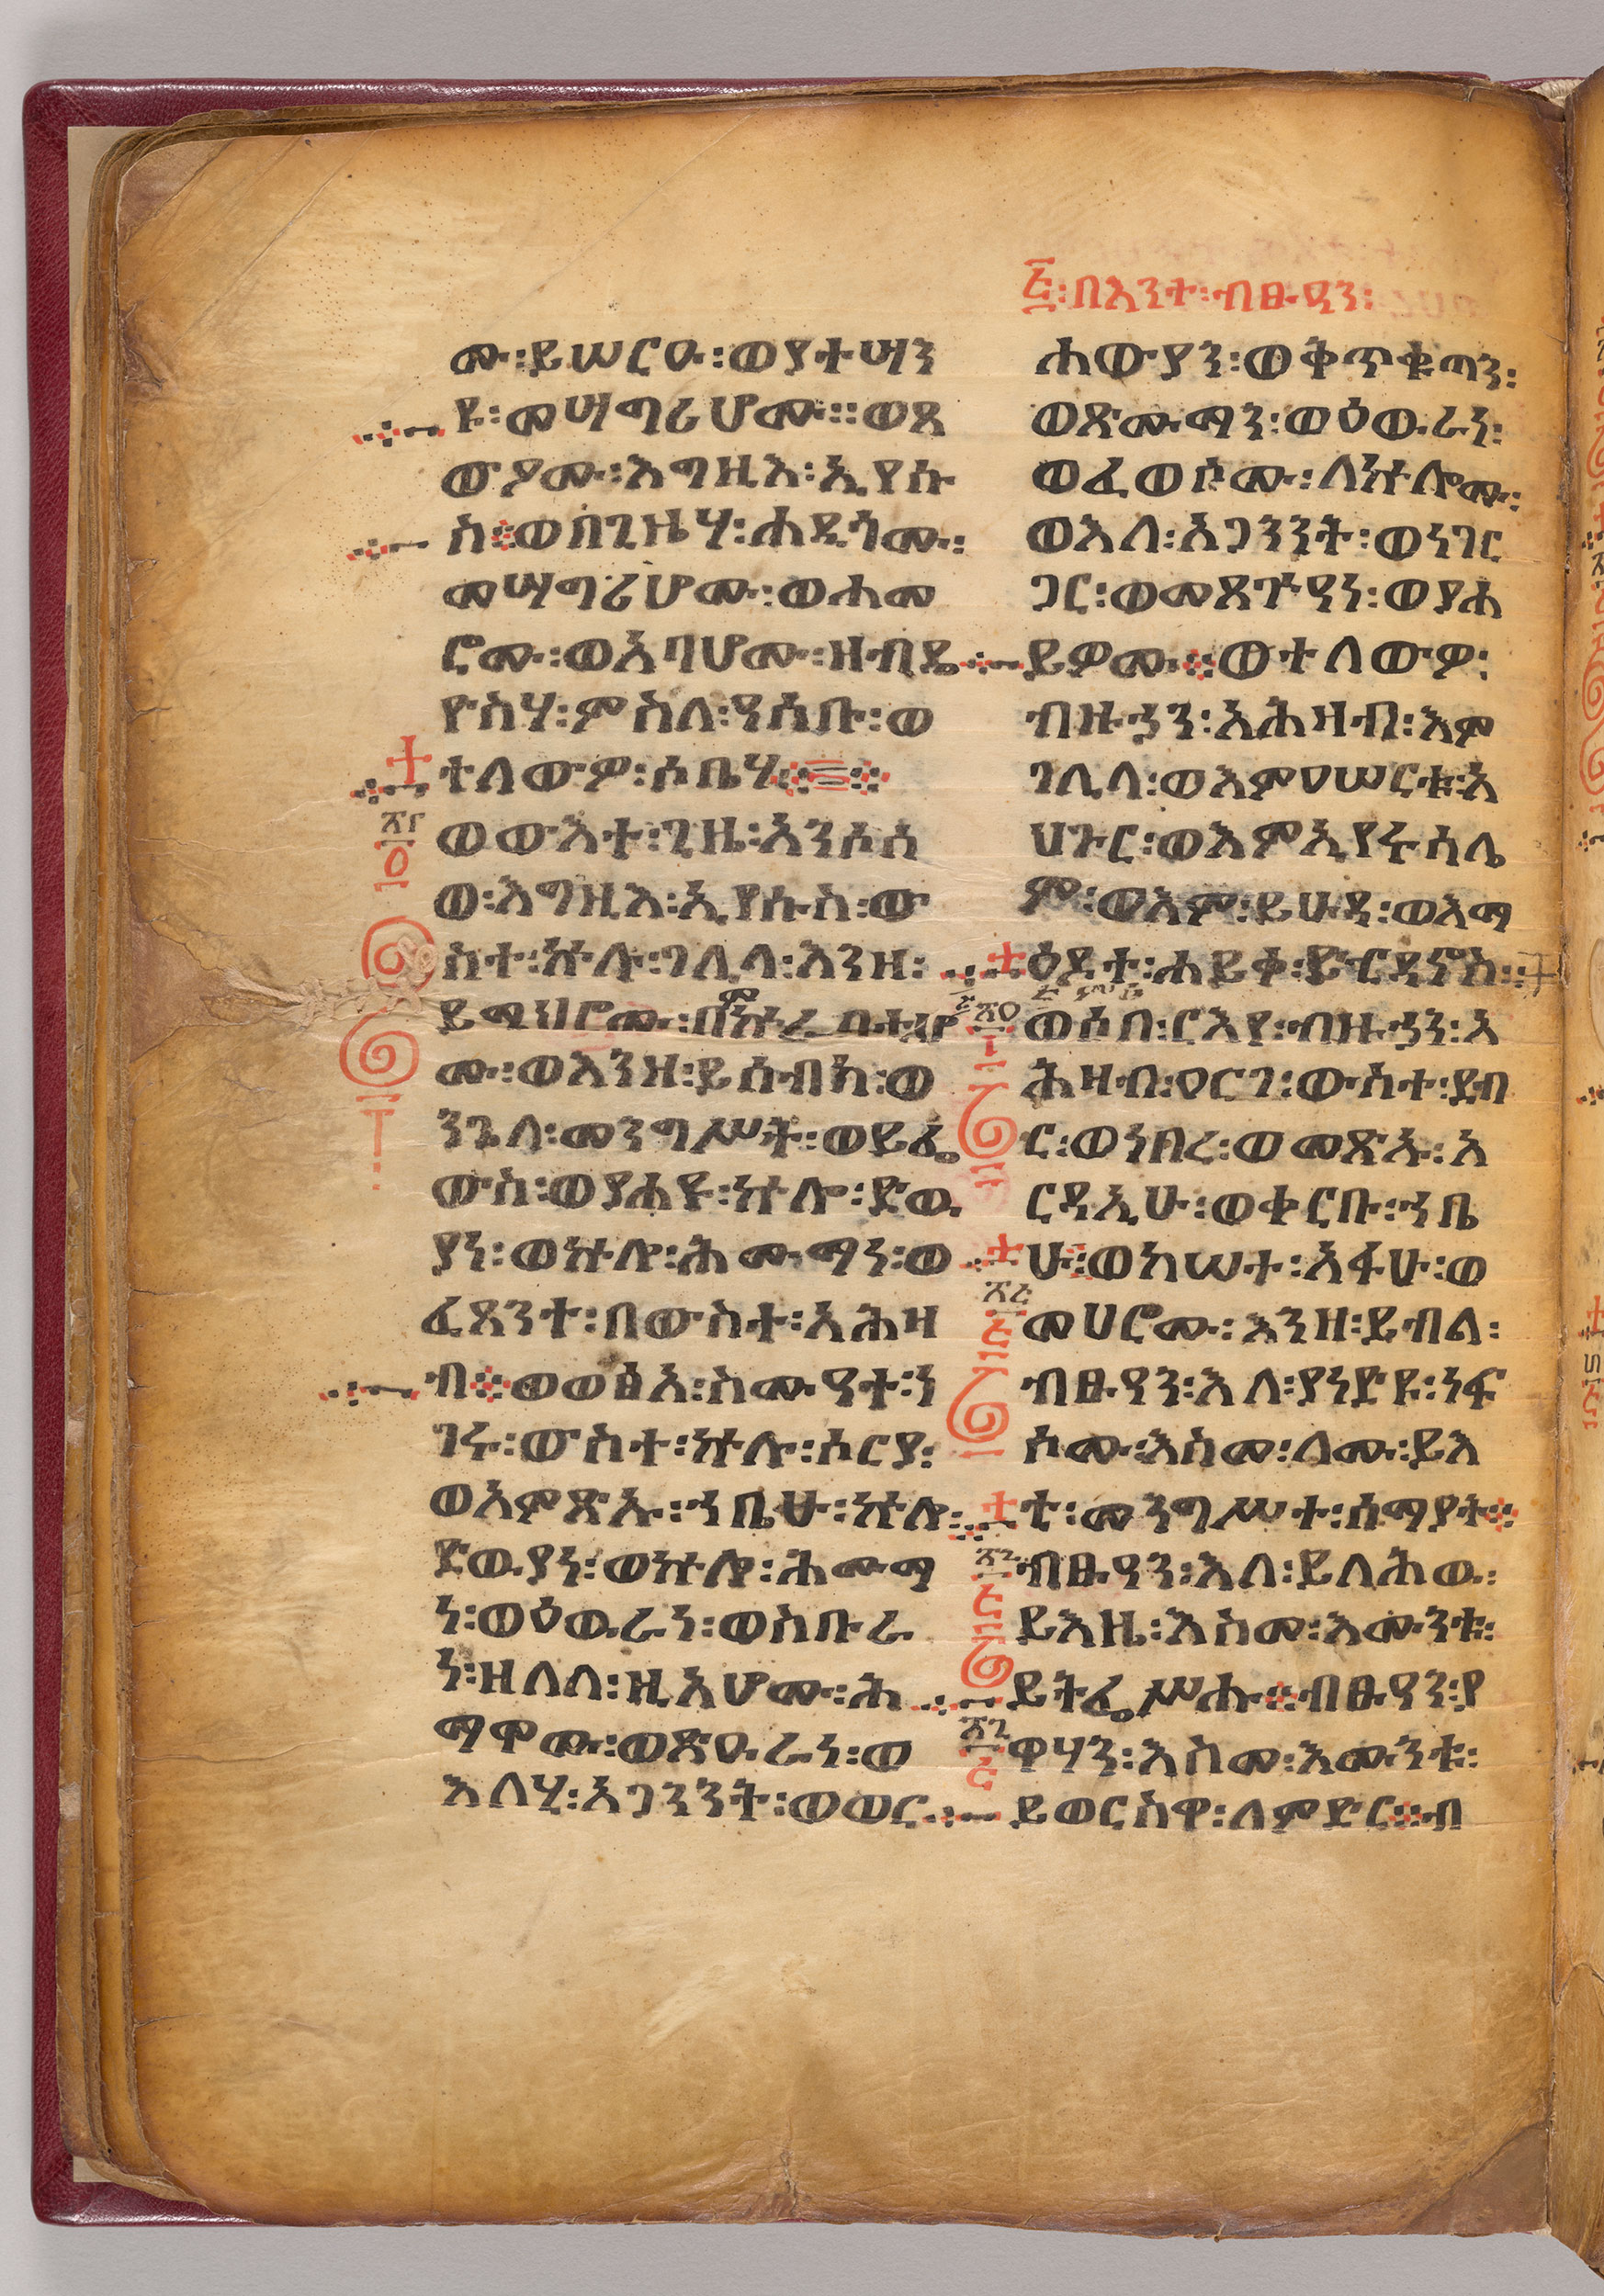 ሙ፡ይሠርዑ፡ወያተሣን
ዩ፡መሣግሪሆሙ፡፡ወጸ
ውዖሙ፡እግዚእ፡ኢየሱ
ስ፨ወበጊዜሃ፡ሐደጎሙ፡
መሣግሪሆሙ፡ወሐመ
ሮሙ፡ወአባሆሙ፡ዘብዴ
ዮስሃ፡ምስለ፡ዓሰቡ፡ወ
ተለውዎ፡ሶቤሃ፨
ወውእተ፡ጊዜ፡አንሶሰ
ወ፡እግዚእ፡ኢየሱስ፡ው
ስተ፡ኵሉ፡ገሊላ፡እንዘ፡
ይሜህሮሙ፡በምኵራባቲሆ
ሙ፡ወእንዘ፡ይሰብክ፡ወ
ንጌለ፡መንግሥት፡ወይፌ
ውስ፡ወያሐዩ፡ኵሎ፡ድዉ
ያነ፡ወኵሎ፡ሕሙማን፡ወ
ፈጸንተ፡በውስተ፡አሕዛ
ብ፨ወወፅአ፡ስሙዓተ፡ነ
ገሩ፡ውስተ፡ኵሉ፡ሶርያ፡
ወአምጽኡ፡ኀቤሁ፡ኵሉ፡
ድዉያነ፡ወኵሎ፡ሕሙማ
ነ፡ወዕዉራነ፡ወስቡራ
ነ፡ዘለለ፡ዚአሆሙ፡ሕ
ማሞሙ፡ወጽዑራነ፡ወ
እለሂ፡አጋንንት፡ወወር
፭፡በእንተ፡ብፁዓን፡
ሐውያን፡ወቅጥቁጣን፡
ወጽሙማን፡ወዕዉራን፡
ወፈወሶሙ፡ለኵሎሙ፡
ወእለ፡አጋንንት፡ወነገር
ጋር፡ወመጸጕዓነ፡ወያሐ
ይዎሙ፨ወተለውዎ፡
ብዙኃን፡አሕዛብ፡እም
ገሊላ፡ወእምዐሠርቱ፡አ
ህጉር፡ወእምኢየሩሳሌ
ም፡ወእም፡ይሁዳ፡ወእማ
ዕዶተ፡ሐይቀ፡ዮርዳኖስ፡፡
ወሶበ፡ርእየ፡ብዙኃን፡አ
ሕዛብ፡ዐርገ፡ውስተ፡ደብ
ር፡ወነበረ፡ወመጽኡ፡አ
ርዳኢሁ፡ወቀርቡ፡ኀቤ
ሁ፡ወከሠተ፡አፋሁ፡ወ
መሀሮሙ፡እንዘ፡ይብል፡
ብፁዓን፡እለ፡ያነድዩ፡ነፍ
ሶሙ፡እስመ፡ሎሙ፡ይእ
ቲ፡መንግሥተ፡ሰማያት፨
ብፁዓን፡እለ፡ይለሕዉ፡
ይእዜ፡እስመ፡እሙንቱ፡
ይትፌሥሑ፨ብፁዓን፡የ
ዋሃን፡እስመ፡እሙንቱ፡
ይወርስዋ፡ለምድር፨ብ